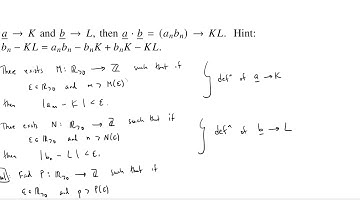 a → K and b → L, then a · b = (aₙbₙ) → KL. Hint:
bₙ − KL = aₙbₙ − bₙK + bₙK − KL.
There exists M: ℝ>0 → ℤ such that if
ε ∈ ℝ>0 and m > M(ε)
then |aₘ − K| < ε.
defⁿ of a → K
There exists N: ℝ>0 → ℤ such that if
ε ∈ ℝ>0 and n > N(ε)
then |bₙ − L| < ε.
defⁿ of b → L
: Find P: ℝ>0 → ℤ such that if
ε ∈ ℝ>0 and p > P(ε)